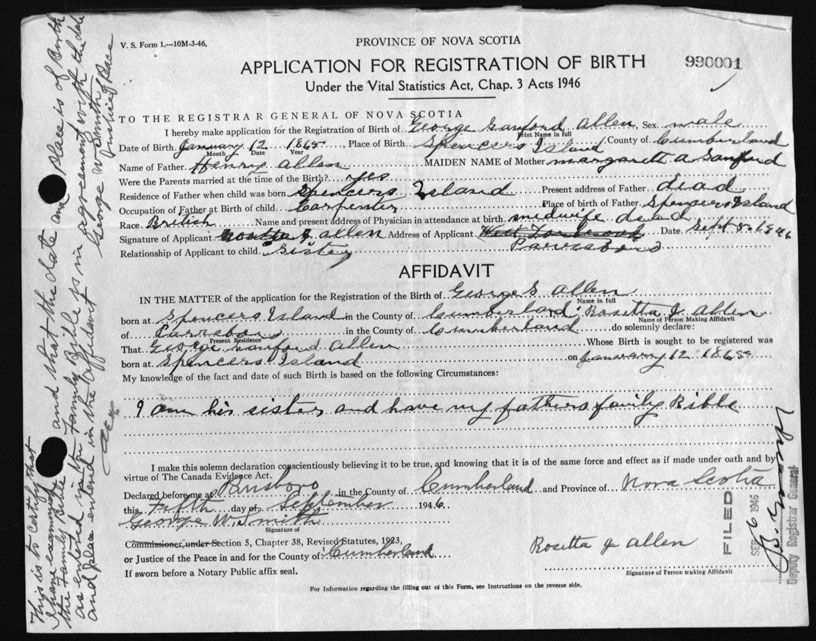 V. S. Form 1.—10M-3-46.
PROVINCE OF NOVA SCOTIA
APPLICATION FOR REGISTRATION OF BIRTH
990001
Under the Vital Statistics Act, Chap. 3 Acts 1946
TO THE REGISTRAR GENERAL OF NOVA SCOTIA
I hereby make application for the Registration of Birth of George Sanford Allen Sex male
Print Name in full
Date of Birth January 12 1865 Place of Birth Spencers Island County of Cumberland
Month Date Year
Name of Father Henry Allen MAIDEN NAME of Mother Margarett A Sanford
Were the Parents married at the time of the Birth? yes
Residence of Father when child was born Spencers Island Present address of Father dead
Occupation of Father at Birth of child Carpenter Place of birth of Father Spencers Island
Race British Name and present address of Physician in attendance at birth midwife dead
Signature of Applicant Rosetta J Allen Address of Applicant Parrsboro Date Sept 5 1946
Relationship of Applicant to child Sister
AFFIDAVIT
IN THE MATTER of the application for the Registration of Birth of George S Allen
Name in full
born at Spencers Island in the County of Cumberland Rosetta J. Allen
Name of Person Making Affidavit
of Parrsboro in the County of Cumberland do solemnly declare:
Present Residence
That George Sanford Allen Whose Birth is sought to be registered was
born at Spencers Island on January 12 1865
My knowledge of the fact and date of such Birth is based on the following Circumstances:
I am his sister and have my fathers family Bible
I make this solemn declaration conscientiously believing it to be true, and knowing that it is of the same force and effect as if made under oath and by
virtue of The Canada Evidence Act.
Declared before me at Parrsboro in the County of Cumberland and Province of Nova Scotia
this Fifth day of September 1946
George W. Smith
Signature of
Commissioner, under Section 5, Chapter 38, Revised Statutes, 1923,
or Justice of the Peace in and for the County of Cumberland
If sworn before a Notary Public affix seal.
Rosetta J Allen
Signature of Person making Affidavit
For Information regarding the filling out of this Form, see Instructions on the reverse side.
FILED
SEP 6 1946
Deputy Registrar General
This is to certify that
I have examined
the Family Bible and that the date and Place is of Birth
as entered in the Family Bible is in agreement with the date
and place entered in the affidavit
George W Smith
Justice of Peace